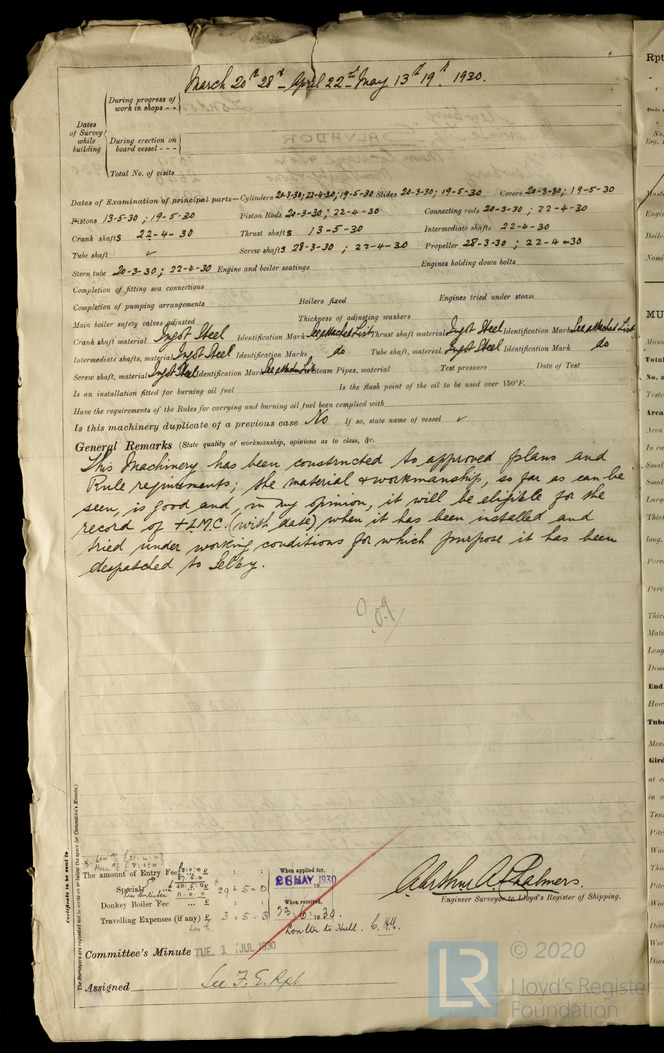 March 20th 28th – April 22nd May 13th 19th 1930.
Dates of Survey while building
During progress of work in shops - -
During erection on board vessel - - -
Total No. of visits
SALVADOR
Dates of Examination of principal parts—Cylinders 20-3-30; 22-4-30; 19-5-30 Slides 20-3-30; 19-5-30 Covers 20-3-30; 19-5-30
Pistons 13-5-30; 19-5-30 Piston Rods 20-3-30; 22-4-30 Connecting rods 20-3-30; 22-4-30
Crank shafts 22-4-30 Thrust shafts 13-5-30 Intermediate shafts 22-4-30
Tube shaft ✓ Screw shafts 28-3-30; 22-4-30 Propeller 28-3-30; 22-4-30
Stern tube 20-3-30; 22-4-30 Engine and boiler seatings Engines holding down bolts
Completion of fitting sea connections
Completion of pumping arrangements Boilers fixed Engines tried under steam
Main boiler safety valves adjusted Thickness of adjusting washers
Crank shaft material Ingot Steel Identification Mark See attached List Thrust shaft material Ingot Steel Identification Mark See attached List
Intermediate shafts, material Ingot Steel Identification Marks do Tube shaft, material Ingot Steel Identification Mark do
Screw shaft, material Ingot Steel Identification Mark See attached List Steam Pipes, material Test pressure Date of Test
Is an installation fitted for burning oil fuel Is the flash point of the oil to be used over 150°F.
Have the requirements of the Rules for carrying and burning oil fuel been complied with
Is this machinery duplicate of a previous case No If so, state name of vessel ✓
General Remarks (State quality of workmanship, opinions as to class, &c.
This Machinery has been constructed to approved plans and
Rule requirements; the material & workmanship, so far as can be
seen, is good and, in my opinion, it will be eligible for the
record of + LMC. (with date) when it has been installed and
tried under working conditions for which purpose it has been
despatched to Selby.
Certificate to be sent to
The Surveyors are requested not to write on or below the space for Committee's Minute.
The amount of Entry Fee
Special ... £ 29 : 5 : 0
Donkey Boiler Fee ... £
Travelling Expenses (if any) £ 3 : 5 : 3
When applied for,
28 MAY 1930
When received,
23.6.1930.
Committee's Minute TUE. 1 JUL 1930
Assigned See F.E. Rpt
Arthur A. Chalmers.
Engineer Surveyor to Lloyd's Register of Shipping.
LR
© 2020
Lloyd's Register
Foundation